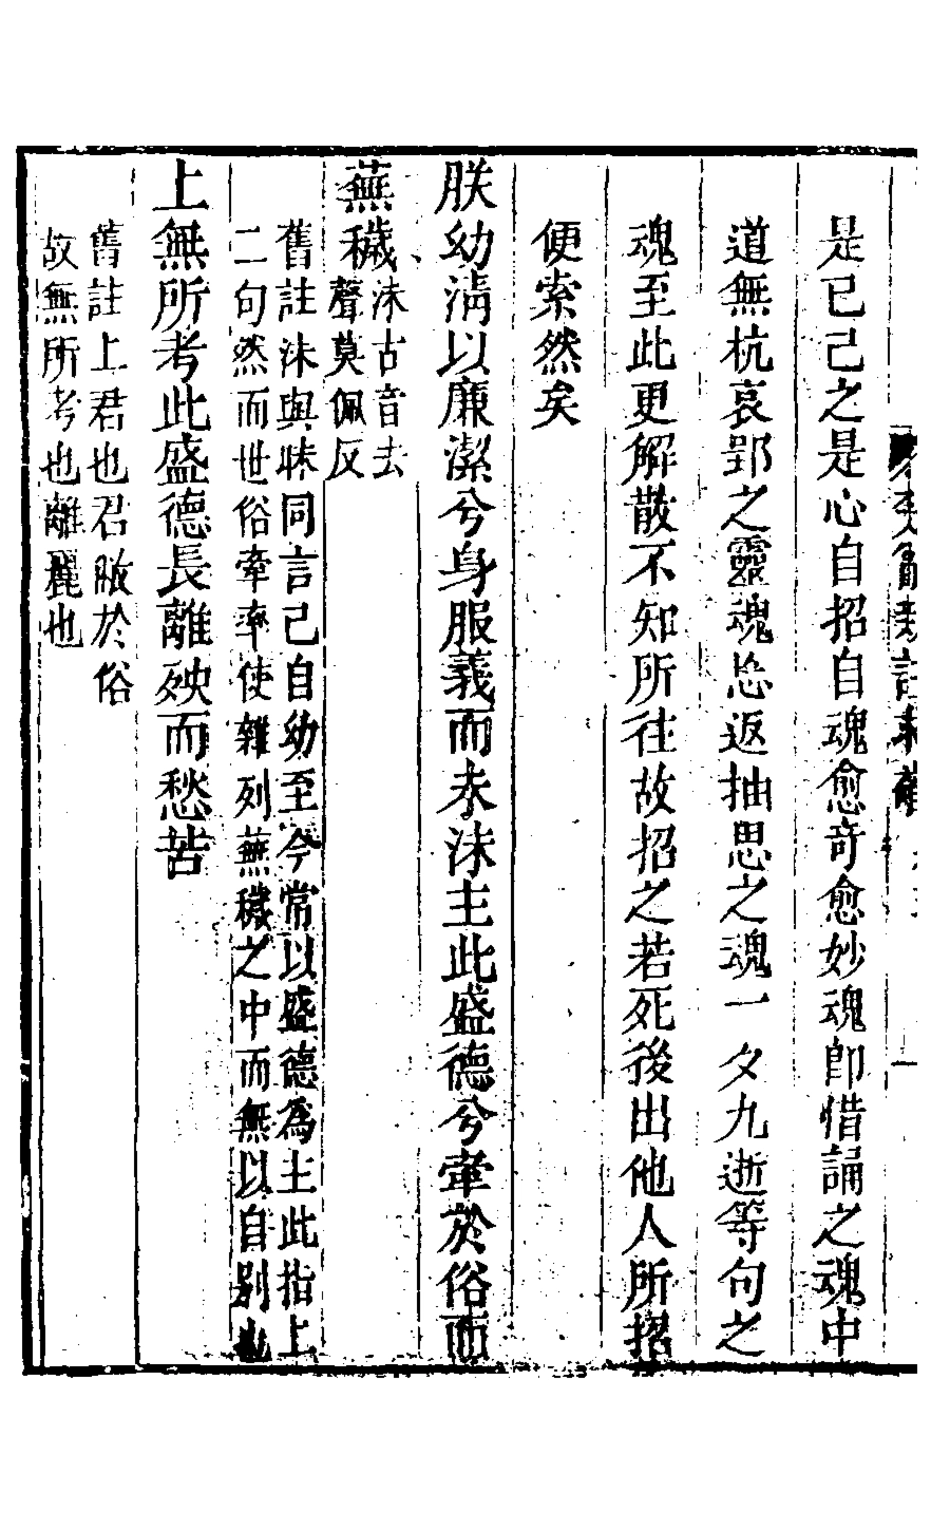 是已己之是心自招自魂愈奇愈妙魂卽惜誦之魂中
道無杭哀郢之靈魂忩返抽思之魂一夕九逝等句之
魂至此更解散不知所往故招之若死後出他人所招
便索然矣
朕幼淸以廉潔兮身服義而未沬主此盛德兮牽於俗而
蕪穢
沬古音去
聲莫佩反
舊註沬與昧同言己自幼至今常以盛德為主此指上
二句然而世俗牽率使雜列蕪穢之中而無以自別也
上無所考此盛德長離殃而愁苦
舊註上君也君敝於俗
故無所考也離麗也